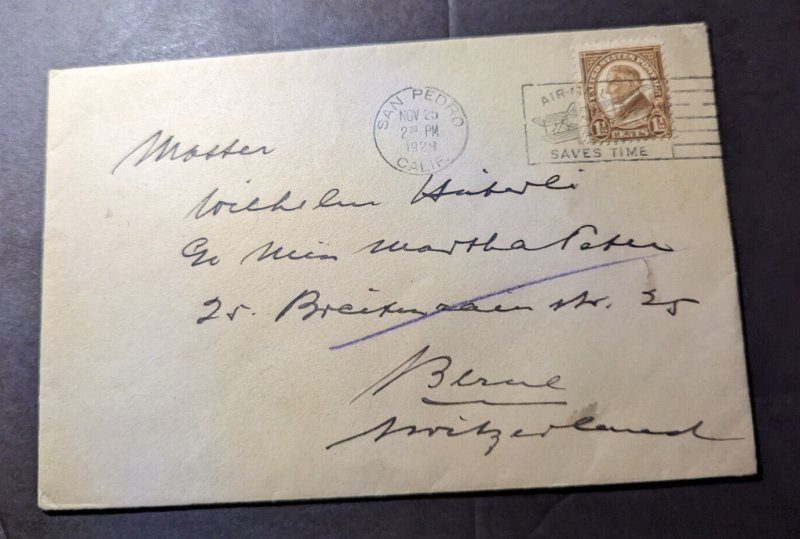 SAN PEDRO
NOV 25
2 30 PM
1929
CALIF.
AIR-M
SAVES TIME
UNITED STATES POSTAGE
1½ CENTS 1½
Master
Wilhelm Häberli
c/o Miss Martha Peter
25. Breitenrain str. 25
Berne
Switzerland